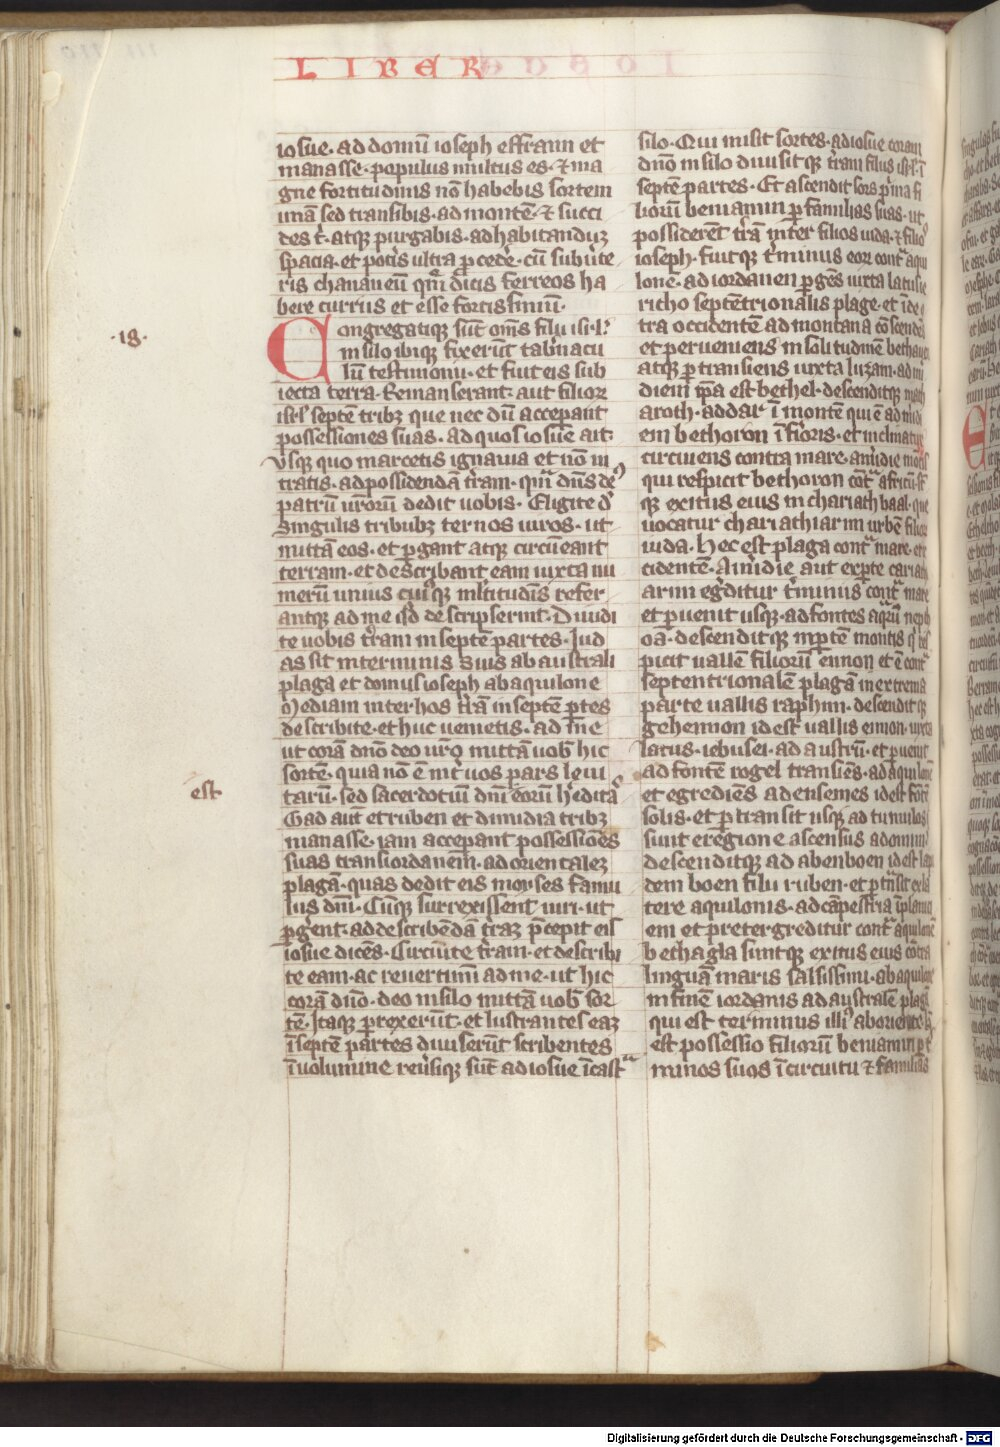 LIBER
iosue · ad domū ioseph effraim et
manasse · populus multus es · ⁊ ma
gne fortitudinis nō habebis sortem
unā sed transibis · ad montē · ⁊ succi
des t̉ · atque purgabis · ad habitanduꝫ
spacia · et potis ultra ꝓcedē · cū subuūte
ris chananeū quē dicis ferreos ha
bere currus et esse fortissimū ·
·18·
Congregatique sūt om̄s filii isrl̄
in silo ibique fixerūt tab̄nacu
lū testimonii · et fuit eis sub
iecta terra · Remanserant aut filioꝝ
isrl̄ septē tribꝫ que nec dū accepant
possessiones suas · ad quos iosue ait
Vsque quo marcetis ignauia et nō in
tratis · ad possidendā t̄ram · quā dn̄s deꝰ
patrū urorū dedit uobis · Eligite d̄
singulis tribubꝫ ternos uiros · ut
mittā eos · et ꝑgant atque circūeant
terram · et describant eam iuxta nu
merū unius cuiꝰque ml̄titudīs refer
antque ad me qd̄ descripserint · Diuidi
te uobis t̄ram in septē partes · Iud
as sit in terminis suis ab australi
plaga et domus ioseph ab aquilone
Mediam inter hos t̄rā in septē ꝑtes
describite · et huc uenietis · ad me
ut corā dn̄o deo urō mittā uob̄ hic
sortē · quia nō ē int̄ uos pars leui
est
tarū · sed sacerdotiū dn̄i eorū h̄editaˢ
Gad aut et ruben et dimidia tribꝫ
manasse · iam accepant possessiones
suas trans iordanem · ad orientaleꝫ
plagā · quas dedit eis moyses famu
lus dn̄i · Cūque surrexissent uiri · ut
ꝑgent · ad describēdā t̄raꝫ p̄cepit eis
iosue dicēs · Circūite t̄ram · et describi
te eam · ac reuertimī ad me · ut hic
corā dn̄o · deo in silo mittā uob̄ sor
tē · Itaque ꝑrexerūt · et lustrantes eaꝫ
ī septē partes diuiserūt scribentes
ī uolumine reuisique sūt ad iosue ī castᵃ
silo · Qui misit sortes · ad iosue coram
dn̄o in silo diuisitque t̄ram filiis isrl̄ · ī
septē partes · Et ascendit sors p̄ma fi
liorū beniamin ꝑ familias suas · ut
possiderēt t̄rā inter filios iuda · ⁊ filioˢ
ioseph · fuitque t̄minus eoꝝ contᵃ aqui
lonē · ad iordanen ꝑgēs iuxta latus ie
richo septētrionalis plage · et īde
tra occidentē ad montana cōscendēs
et perueniens in solitudinē bethauē
atque ꝑtransiens iuxta luzam · ad mi
diem ip̄a est bethel · descenditque
aroth · addar ī montē qui ē ad midi
em bethoron īf̄ioris · et inclinatur
circuiens contra mare · amidie montis
qui respicit bethoron cōtᵃ africū st
que exitus eius in chariath baal · que
uocatur chariathiarim urbē filioꝝ
iuda · Hec est plaga contᵃ mare · oc
cidentē · A midie aut ex ꝑte cariath
arim eḡditur t̄minus contᵃ mare
et ꝑuenit usque · ad fontes aqᵃꝝ neph
oā · descenditque in ꝑtē montis q̄ res
picit uallē filiorū ennon et ē contᵃ
septentrionalē plagā in extrema
parte uallis raphim · descenditque
gehennon id est uallis ennon · iuxta
latus · iebusei · ad austrū · et ꝑuenit
ad fontē rogel transiēs · ad aquilonē
et egrediēs ad ensemes id est fōtē
solis · et ꝑtransit usque ad tumulos
sunt eregione ascensus adommī
descenditque ad abenboen id est lapi
dem boen filii ruben · et ꝑtᵃnsit ex la
tere aquilonis · ad cāpestria ī planici
em et pretergreditur contᵃ aquilonē
bethagla suntque exitus eius cōtra
linguā maris salsissimi · ab aquilone
in fine iordanis ad australē plagā
qui est terminus illiꝰ ab oriente hec
est possessio filiorū beniamin ꝑ t̄
minos suos ī circuitu ⁊ familias